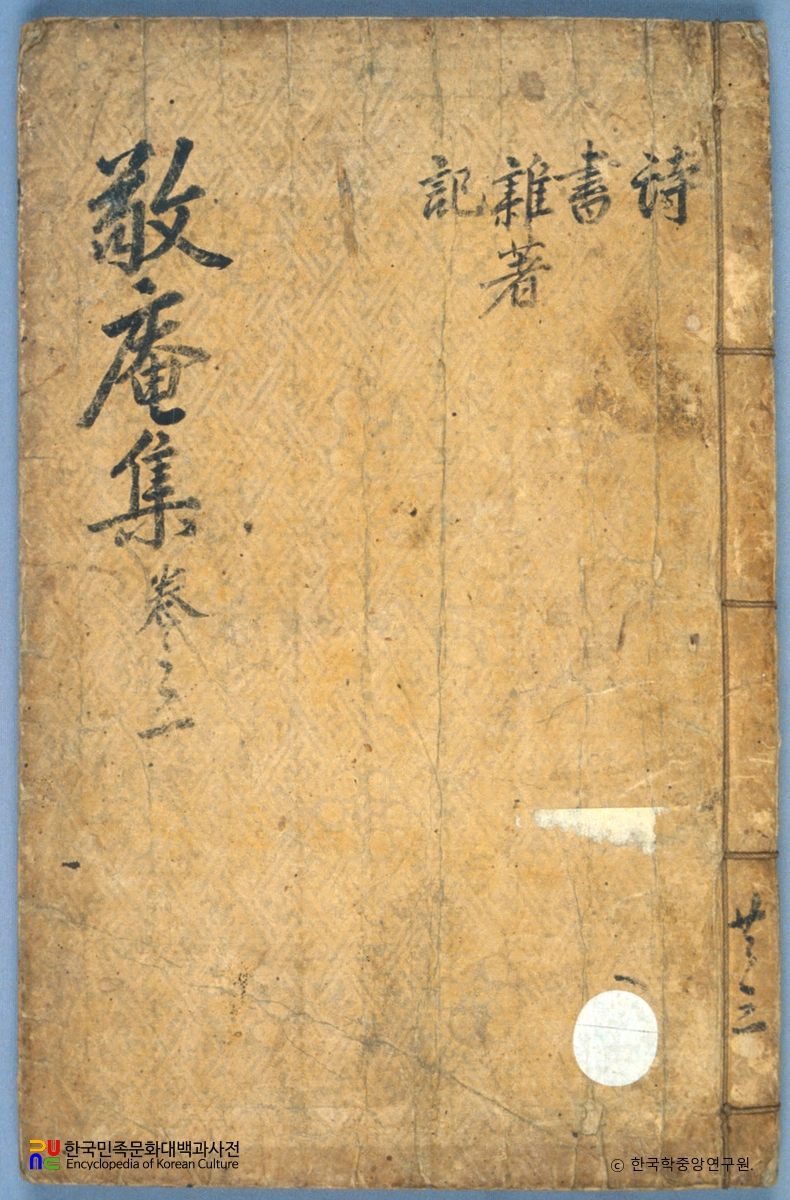 詩
書
雜著
記
敬庵集 卷之一
共三
한국민족문화대백과사전
Encyclopedia of Korean Culture
© 한국학중앙연구원